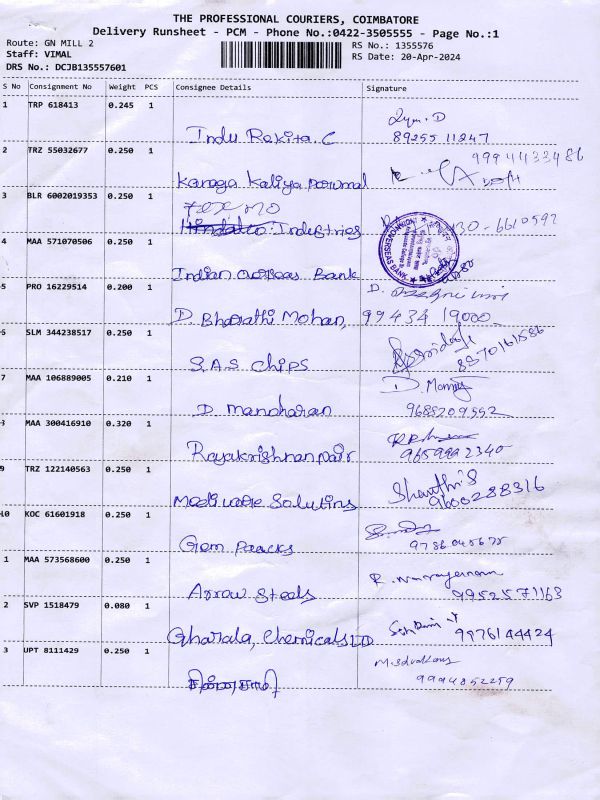 THE PROFESSIONAL COURIERS, COIMBATORE
Delivery Runsheet - PCM - Phone No.:0422-3505555 - Page No.:1
Route: GN MILL 2
Staff: VIMAL
DRS No.: DCJB135557601
RS No.: 1355576
RS Date: 20-Apr-2024
S No Consignment No Weight PCS Consignee Details Signature
1 TRP 618413 0.245 1
Indu Rekita. C 89255 11247
2 TRZ 55032677 0.250 1 9994433486
Kanaga Kaliya perumal
3 BLR 6002019353 0.250 1
Industries
4 MAA 571070506 0.250 1
Indian overseas Bank
5 PRO 16229514 0.200 1
D. Bharathi Mohan, 99434 19000
6 SLM 344238517 0.250 1
S.A.S Chips
7 MAA 106889005 0.210 1
D. manoharan 9688209552
8 MAA 300416910 0.320 1
Rajakrishnan nair 9659992340
9 TRZ 122140563 0.250 1 Shanthi S
Medi ware Solutions 9600288316
10 KOC 61601918 0.250 1
Gem Paacks
1 MAA 573568600 0.250 1
Arrow Steels 9952571163
2 SVP 1518479 0.080 1
Gharala, Chemicals LTD 9976144424
3 UPT 8111429 0.250 1
சின்னசாமி 9994852259